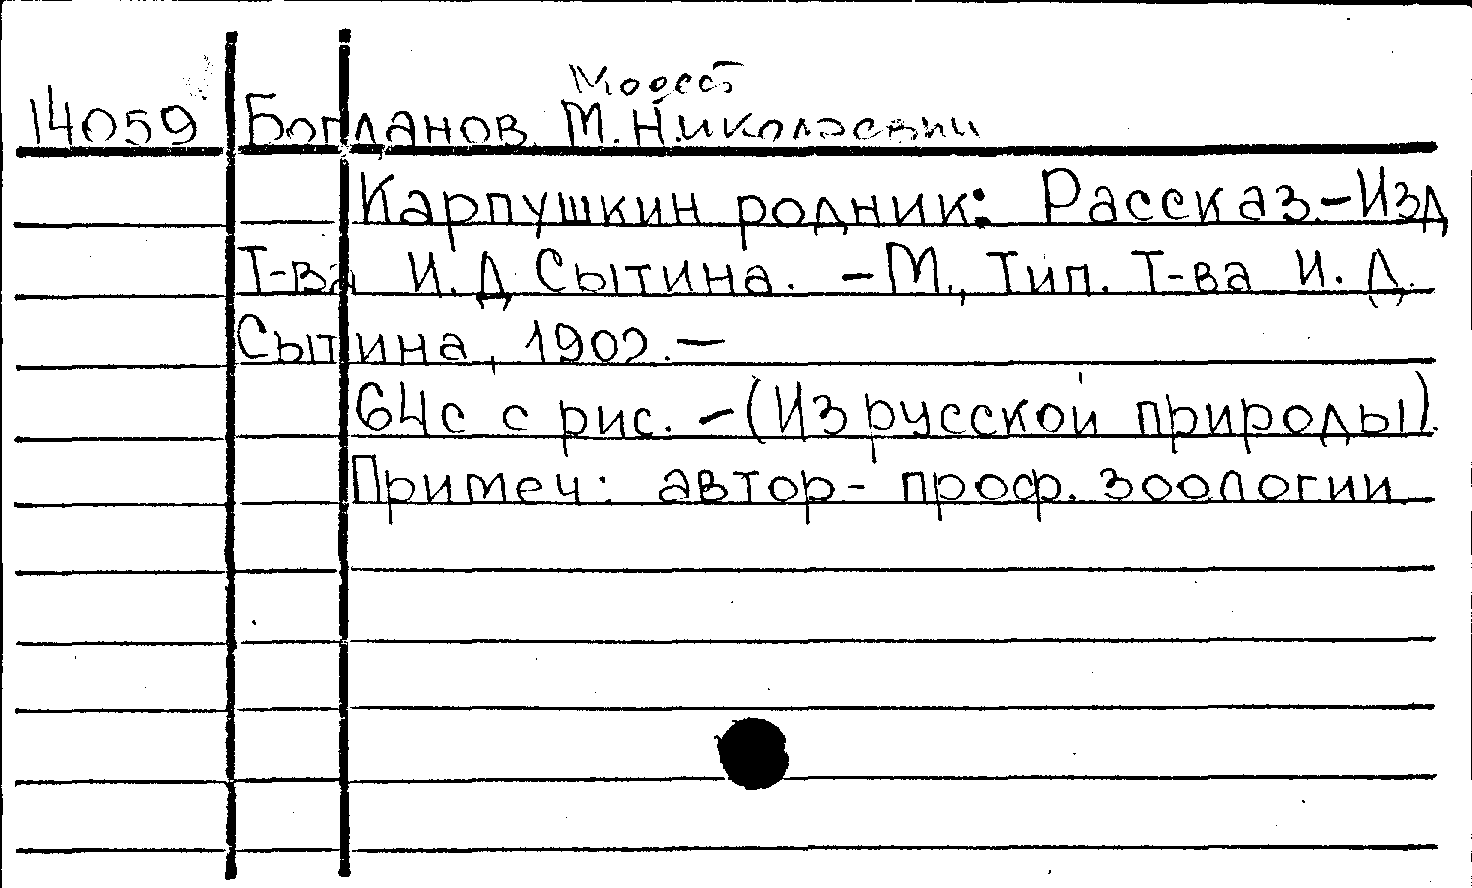 Модест
14059 Богданов М. Николаевич
Карпушкин родник: Рассказ.-Изд
Т-ва И. Д Сытина. - М., Тип. Т-ва И. Д.
Сытина, 1902. -
64с с рис. - (Из русской природы).
Примеч: автор - проф. зоологии